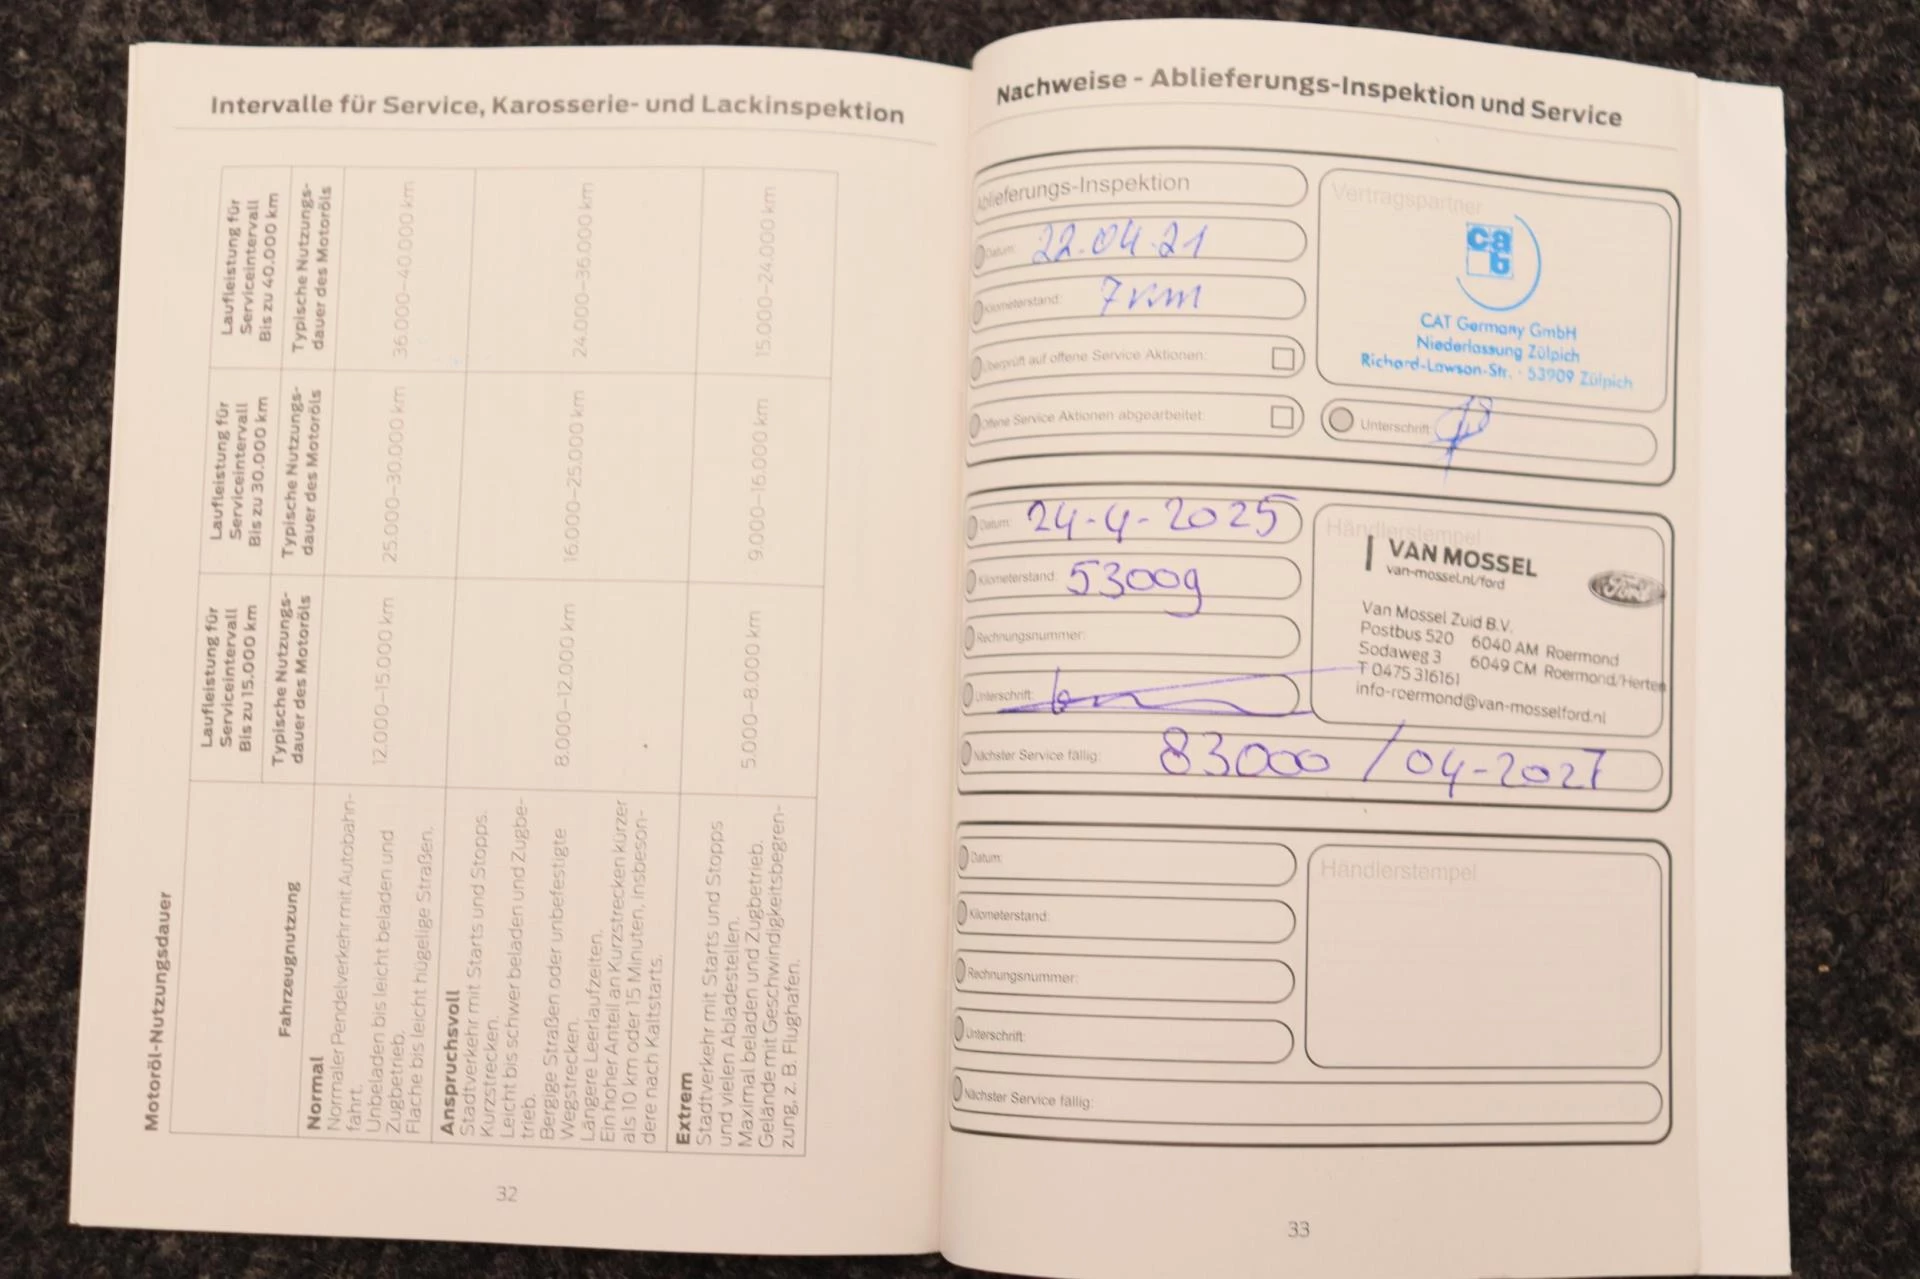 Intervalle für Service, Karosserie- und Lackinspektion
Motoröl-Nutzungsdauer
Fahrzeugnutzung
Laufleistung für
Serviceintervall
Bis zu 15.000 km
Laufleistung für
Serviceintervall
Bis zu 30.000 km
Laufleistung für
Serviceintervall
Bis zu 40.000 km
Typische Nutzungs-
dauer des Motoröls
Typische Nutzungs-
dauer des Motoröls
Typische Nutzungs-
dauer des Motoröls
Normal
Normaler Pendelverkehr mit Autobahn-
fahrt.
Unbeladen bis leicht beladen und
Zugbetrieb.
Flache bis leicht hügelige Straßen.
12.000–15.000 km
25.000–30.000 km
36.000–40.000 km
Anspruchsvoll
Stadtverkehr mit Starts und Stopps.
Kurzstrecken.
Leicht bis schwer beladen und Zugbe-
trieb.
Bergige Straßen oder unbefestigte
Wegstrecken.
Längere Leerlaufzeiten.
Ein hoher Anteil an Kurzstrecken kürzer
als 10 km oder 15 Minuten, insbeson-
dere nach Kaltstarts.
8.000–12.000 km
16.000–25.000 km
24.000–36.000 km
Extrem
Stadtverkehr mit Starts und Stopps
und vielen Abladestellen.
Maximal beladen und Zugbetrieb.
Gelände mit Geschwindigkeitsbegren-
zung, z. B. Flughafen.
5.000–8.000 km
9.000–16.000 km
15.000–24.000 km
32
Nachweise - Ablieferungs-Inspektion und Service
Ablieferungs-Inspektion
Datum: 22.04.21
Kilometerstand: 7 km
Überprüft auf offene Service Aktionen:
Offene Service Aktionen abgearbeitet:
Vertragspartner
cab
CAT Germany GmbH
Niederlassung Zülpich
Richard-Lawson-Str. · 53909 Zülpich
Unterschrift:
Datum: 24-4-2025
Kilometerstand: 53009
Rechnungsnummer:
Unterschrift:
Händlerstempel
VAN MOSSEL
van-mossel.nl/ford
Ford
Van Mossel Zuid B.V.
Postbus 520 6040 AM Roermond
Sodaweg 3 6049 CM Roermond/Herten
T 0475 316161
info-roermond@van-mosselford.nl
Nächster Service fällig: 83000 / 04-2027
Datum:
Kilometerstand:
Rechnungsnummer:
Unterschrift:
Händlerstempel
Nächster Service fällig:
33